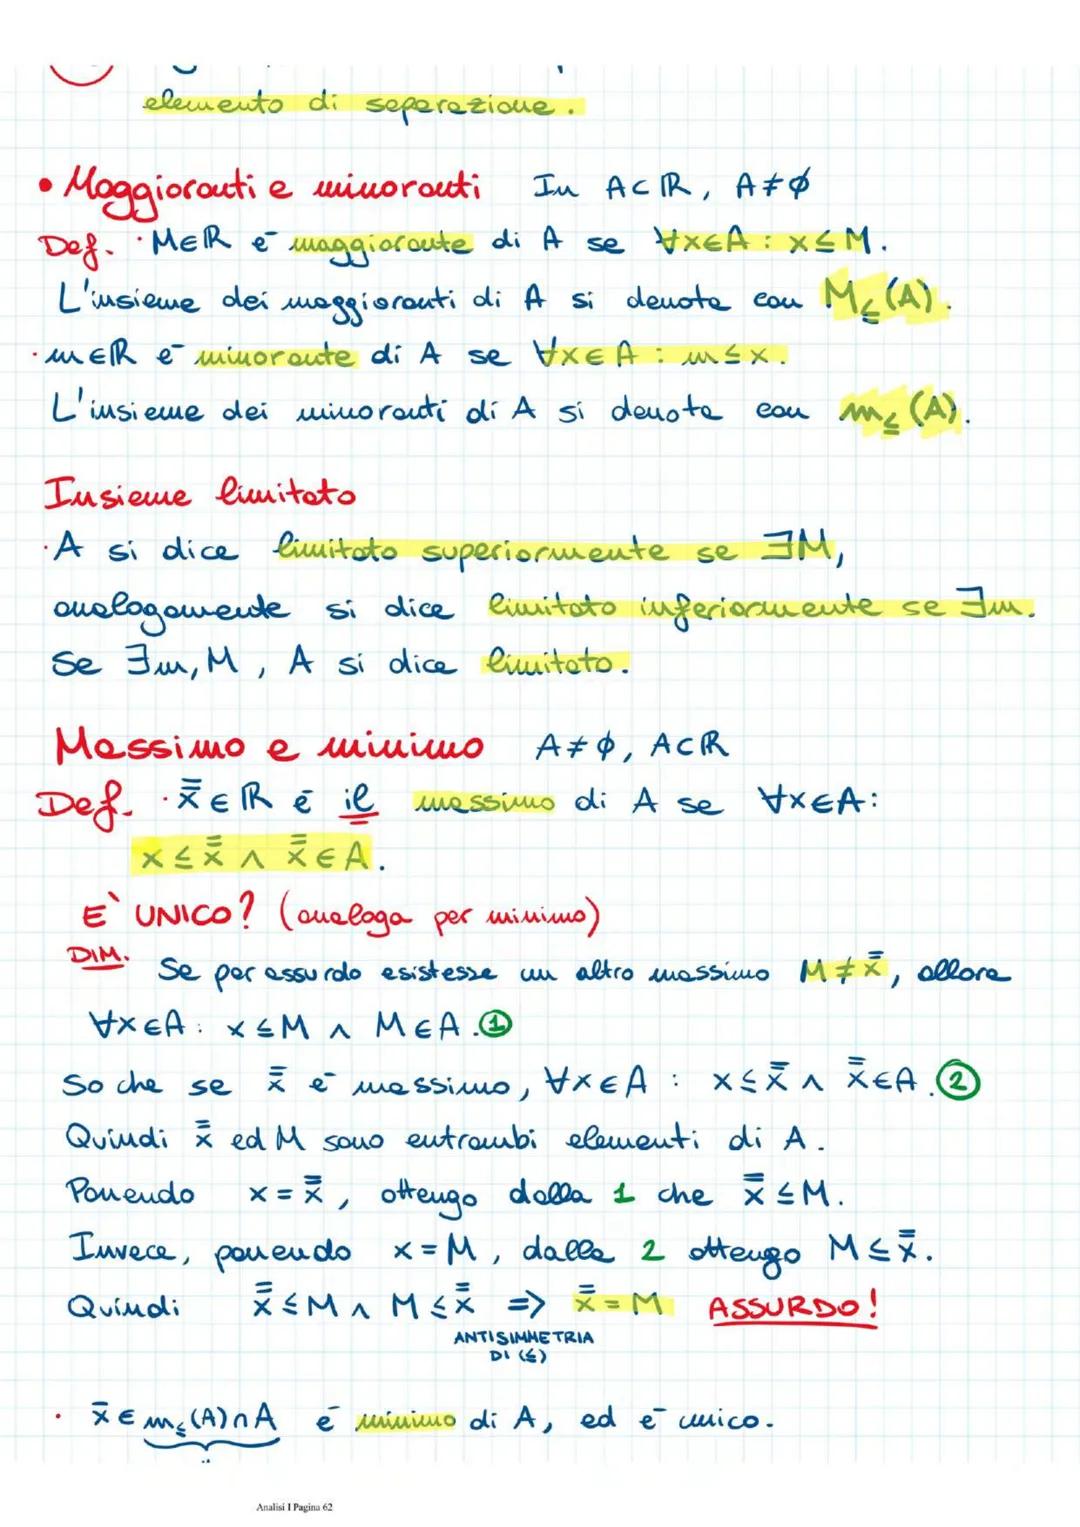 elemento di separazione.
• Maggioranti e minoranti In A⊂ℝ, A≠∅
Def. · M∈ℝ è maggiorante di A se ∀x∈A : x≤M.
L'insieme dei maggioranti di A si denota con M≤(A).
· m∈ℝ è minorante di A se ∀x∈A : m≤x.
L'insieme dei minoranti di A si denota con m≤(A).
Insieme limitato
· A si dice limitato superiormente se ∃M,
analogamente si dice limitato inferiormente se ∃m.
Se ∃m, M, A si dice limitato.
Massimo e minimo A≠∅, A⊂ℝ
Def. · x̿∈ℝ è il massimo di A se ∀x∈A:
x≤x̿ ∧ x̿∈A.
E` UNICO? (analoga per minimo)
DIM. Se per assurdo esistesse un altro massimo M≠x̿, allora
∀x∈A: x≤M ∧ M∈A. ①
So che se x̿ è massimo, ∀x∈A : x≤x̿ ∧ x̿∈A. ②
Quindi x̿ ed M sono entrambi elementi di A.
Ponendo x=x̿, ottengo dalla 1 che x̿≤M.
Invece, ponendo x=M, dalla 2 ottengo M≤x̿.
Quindi x̿≤M ∧ M≤x̿ => x̿=M ASSURDO!
ANTISIMMETRIA
DI (≤)
· x̄∈m≤(A)∩A è minimo di A, ed è unico.
Analisi I Pagina 62